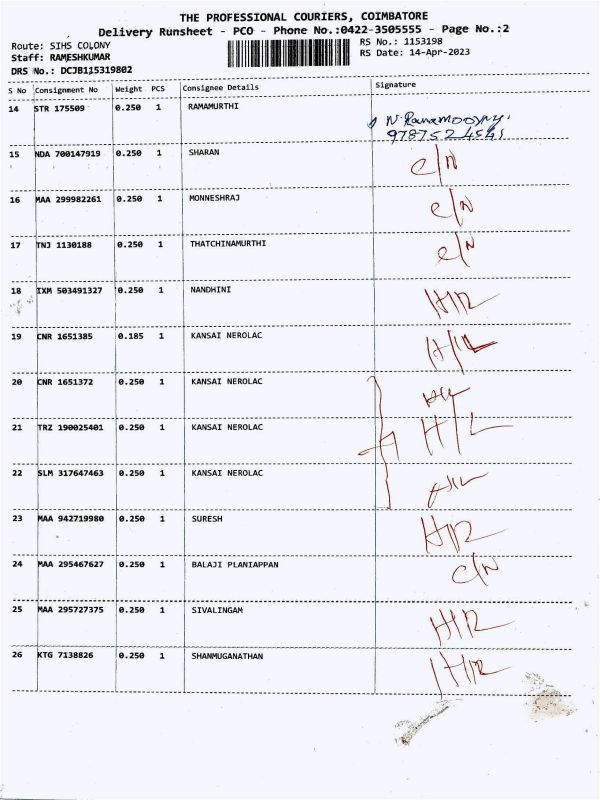 THE PROFESSIONAL COURIERS, COIMBATORE
Delivery Runsheet - PCO - Phone No.:0422-3505555 - Page No.:2
Route: SIHS COLONY RS No.: 1153198
Staff: RAMESHKUMAR RS Date: 14-Apr-2023
DRS No.: DCJB115319802
S No Consignment No Weight PCS Consignee Details Signature
14 STR 175509 0.250 1 RAMAMURTHI
9787524541
15 NDA 700147919 0.250 1 SHARAN C/N
16 MAA 299982261 0.250 1 MONNESHRAJ C/N
17 TNJ 1130188 0.250 1 THATCHINAMURTHI C/N
18 IXM 503491327 0.250 1 NANDHINI
19 CNR 1651385 0.185 1 KANSAI NEROLAC
20 CNR 1651372 0.250 1 KANSAI NEROLAC
21 TRZ 190025401 0.250 1 KANSAI NEROLAC
22 SLM 317647463 0.250 1 KANSAI NEROLAC
23 MAA 942719980 0.250 1 SURESH
24 MAA 295467627 0.250 1 BALAJI PLANIAPPAN C/N
25 MAA 295727375 0.250 1 SIVALINGAM
26 KTG 7138826 0.250 1 SHANMUGANATHAN